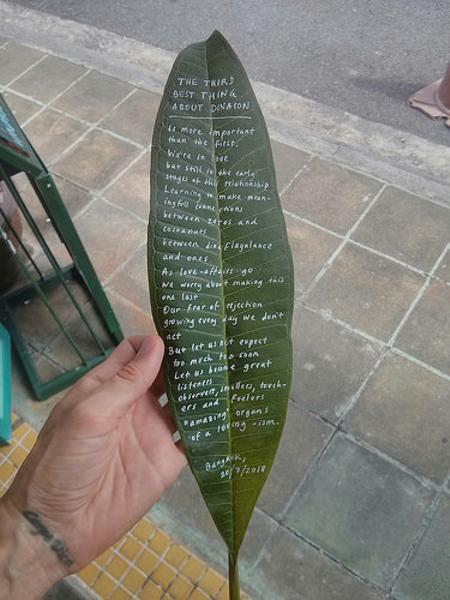 THE THIRD
BEST THING
ABOUT DINACON
is more important
than the first.
We're in love
but still in the early
stages of this relationship
Learning to make mean-
ingfull connections
between zeros and
coconuts
between
and ones
As love-affairs go
we worry about making this
one last
Our fear of rejection
growing every day we don't
act
But let us not expect
too much too soon
Let us become great
listeners
observers, smellers, touch-
ers and feelers
organs
of a loving -ism.
Bangkok,
20/7/2018
Carpe Diem